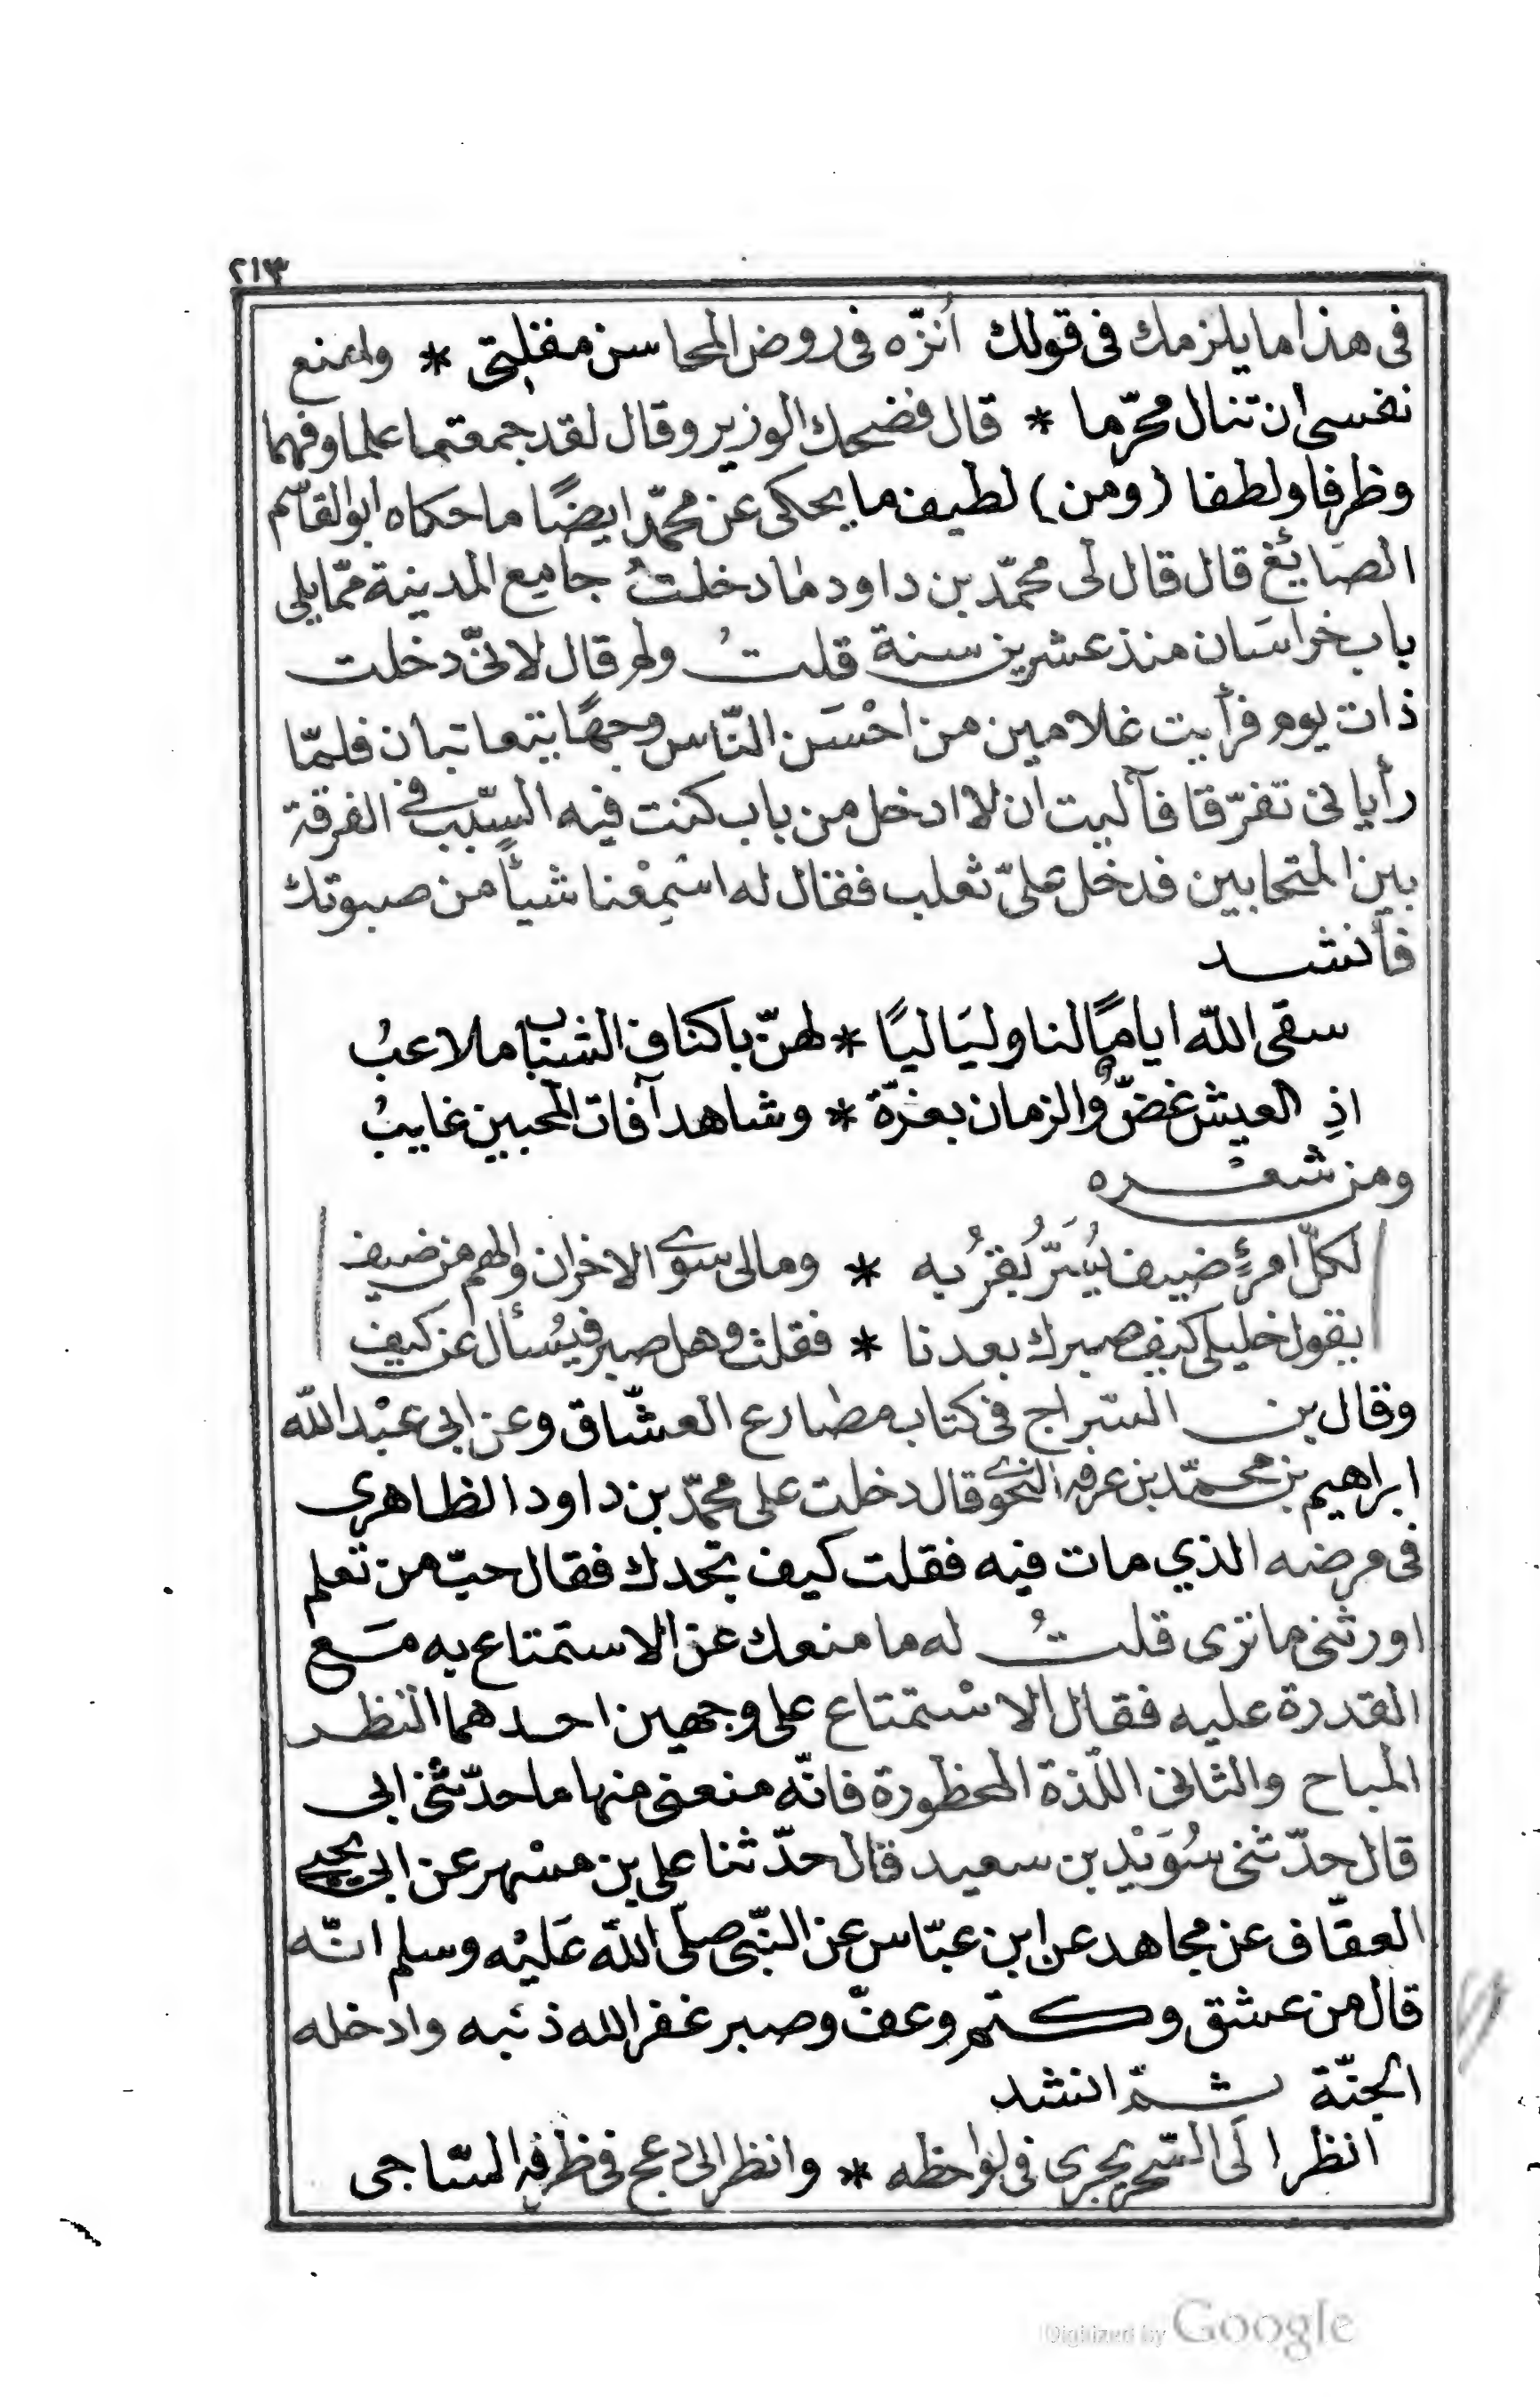 ٢١٣
فى هذا ما يلزمك فى قولك أنزّه فى روض المحاسن مقلتى * وامنع
نفسى ان تنال محرّما * قال فضحك الوزير وقال لقد جمعتما علما وفهما
وظرفا ولطفا (ومن) لطيف ما يحكى عن محمّد ايضًا ما حكاه ابو القاسم
الصَائغ قال قال لى محمّد بن داود ما دخلتُ جامع المدينة ممّا يلى
باب خراسَان منذ عشرين سنة قلتُ ولم قال لانّى دخلت
ذات يوم فرأيت غلامين من احْسَن النّاس وجهًا يتعاتبان فلمّا
رأيانى تفرّقا فآليت ان لا ادخل من باب كنت فيه السّبب فى الفرقة
بين المتحابين فدخل على ثعلب فقال له اسْمِعْنا شيأً من صبوتك
فأنشد
سقى الله ايامًا لنا وليَاليًا * لهنّ باكناف الشباب ملاعبُ
اذِ العيش غضّ والزمان بغرّة * وشاهد آفات المحبين غايبُ
ومن شعْره
لكلّ امرئٍ ضيف يُسَرّ بُقرُبه * ومالى سوى الاحزان والهم من ضيف
يقول خليلى كيف صبرك بعدنا * فقلت وهل صبر فيُسأل عن كيف
وقال بن السّراج فى كتاب مصارع العشّاق وعن ابى عبْد الله
ابراهيم بن محمّد بن عرفه النحوى قال دخلت على محمّد بن داود الظاهرى
فى مرضه الذي مات فيه فقلت كيف تجدك فقال حبّ من تعلم
اورثنى ما ترى قلتُ له ما منعك عن الاستمتاع به مَع
القدرة عليه فقال الاسْتمتاع على وجهين احدهما النّظر
المباح والثانى اللّذة المحظورة فانّه منعنى منها ما حدّثنى ابى
قال حدّثنى سُوَيْد بن سعيد قال حدّثنا على بن مسْهر عن ابى يحيى
العقّاف عن مجاهد عن ابن عبّاس عن النّبى صلّى الله عَليْه وسلم انّه
قال من عشق وكتم وعفّ وصبر غفر الله ذنبه وادخله
الجنّة ثمّ انشد
انظر الَى السّحر يجرى فى لواحظه * وانظر الى دعج فى طرفه السّاجى
Digitized by Google